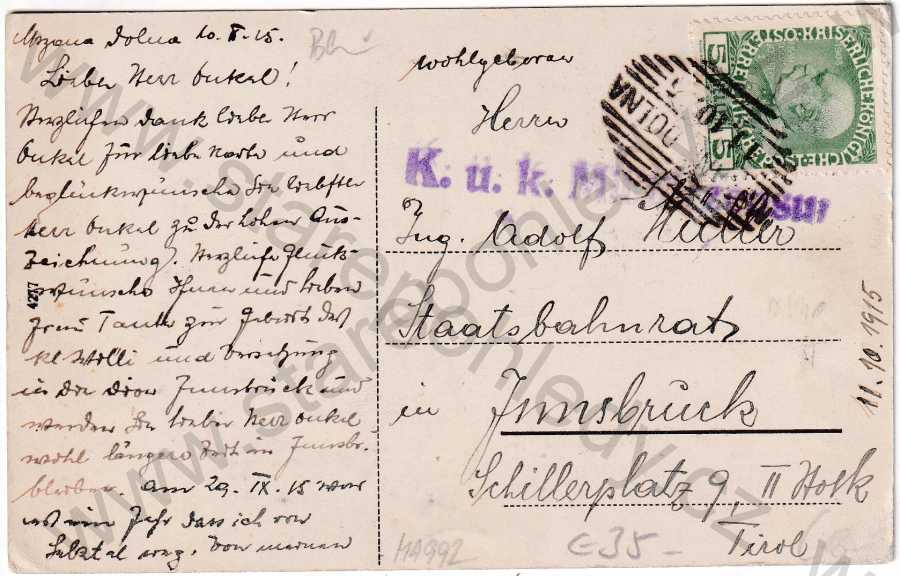 Mszana Dolna 10. X. 15.
Lieber Herr Onkel!
Herzlichen Dank lieber Herr
Onkel für liebe Karte und
beglückwünsche Sie liebster
Herr Onkel zu der hohen Aus-
zeichnung. Herzliche Glück-
wünsche Ihnen und lieben
Frau Tante zur Geburt des
und Versetzung
in die Innsbruck und
werden Sie lieber Herr Onkel
wohl längere Zeit in Innsbr.
bleiben. Am 29. IX. 15 war
ein Jahr dass ich von
von meinen
4277
wohlgeboren
Herrn
Ing. Adolf
Staatsbahnrat
in Innsbruck
Schillerplatz 9, II Stock
Tirol
K. u. k.
DOLNA
5 5
KAISERLICHE KÖNIGLICHE ÖSTERREICHISCHE
11.10.1915
MA992
€35-
www.starepohledy.cz